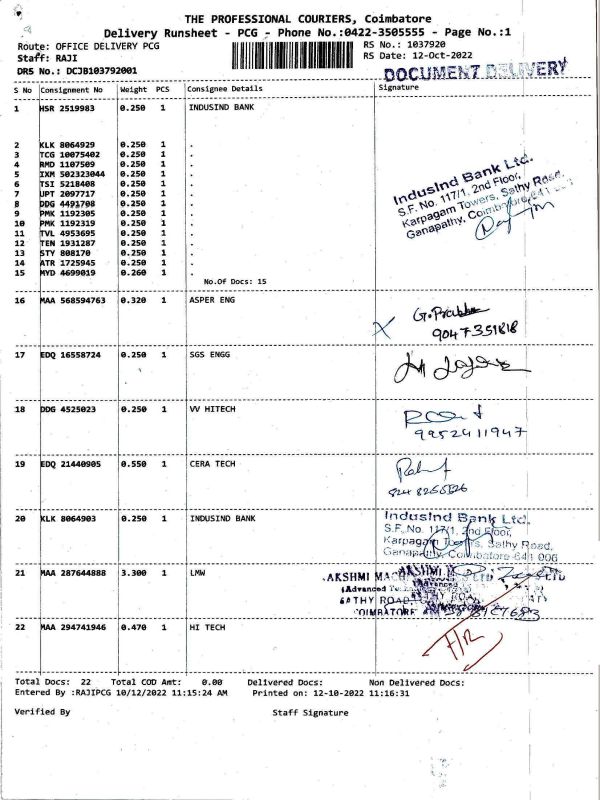 THE PROFESSIONAL COURIERS, Coimbatore
Delivery Runsheet - PCG - Phone No.:0422-3505555 - Page No.:1
Route: OFFICE DELIVERY PCG RS No.: 1037920
Staff: RAJI RS Date: 12-Oct-2022
DRS No.: DCJB103792001 DOCUMENT DELIVERY
S No Consignment No Weight PCS Consignee Details Signature
1 HSR 2519983 0.250 1 INDUSIND BANK
2 KLK 8064929 0.250 1 .
3 TCG 10075402 0.250 1 .
4 RMD 1107509 0.250 1 .
5 IXM 502323044 0.250 1 .
6 TSI 5218408 0.250 1 .
7 UPT 2097717 0.250 1 .
8 DDG 4491708 0.250 1 .
9 PMK 1192305 0.250 1 .
10 PMK 1192319 0.250 1 .
11 TVL 4953695 0.250 1 .
12 TEN 1931287 0.250 1 .
13 STY 808170 0.250 1 .
14 ATR 1725945 0.250 1 .
15 MYD 4699019 0.260 1 .
No.Of Docs: 15
IndusInd Bank Ltd.
S.F. No. 117/1, 2nd Floor,
Karpagam Towers, Sathy Road,
Ganapathy, Coimbatore-641
16 MAA 568594763 0.320 1 ASPER ENG
G. Prabhu
9047351818
17 EDQ 16558724 0.250 1 SGS ENGG
18 DDG 4525023 0.250 1 VV HITECH
9952411947
19 EDQ 21440905 0.550 1 CERA TECH
20 KLK 8064903 0.250 1 INDUSIND BANK
IndusInd Bank Ltd.
S.F. No. 117/1, 2nd Floor,
Karpagam Towers, Sathy Road,
Ganapathy, Coimbatore-641 006
21 MAA 287644888 3.300 1 LMW
22 MAA 294741946 0.470 1 HI TECH
Total Docs: 22 Total COD Amt: 0.00 Delivered Docs: Non Delivered Docs:
Entered By :RAJIPCG 10/12/2022 11:15:24 AM Printed on: 12-10-2022 11:16:31
Verified By Staff Signature